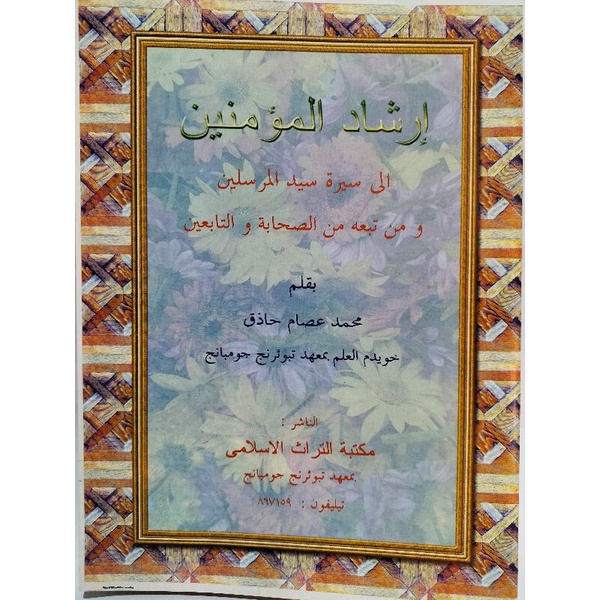 إرشاد المؤمنين
الى سيرة سيد المرسلين
و من تبعه من الصحابة و التابعين
بقلم
محمد عصام حاذق
خويدم العلم بمعهد تبوئرنج جومبانج
الناشر :
مكتبة التراث الاسلامى
بمعهد تبوئرنج جومبانج
تيليفون : ٨٦٧١٥٩